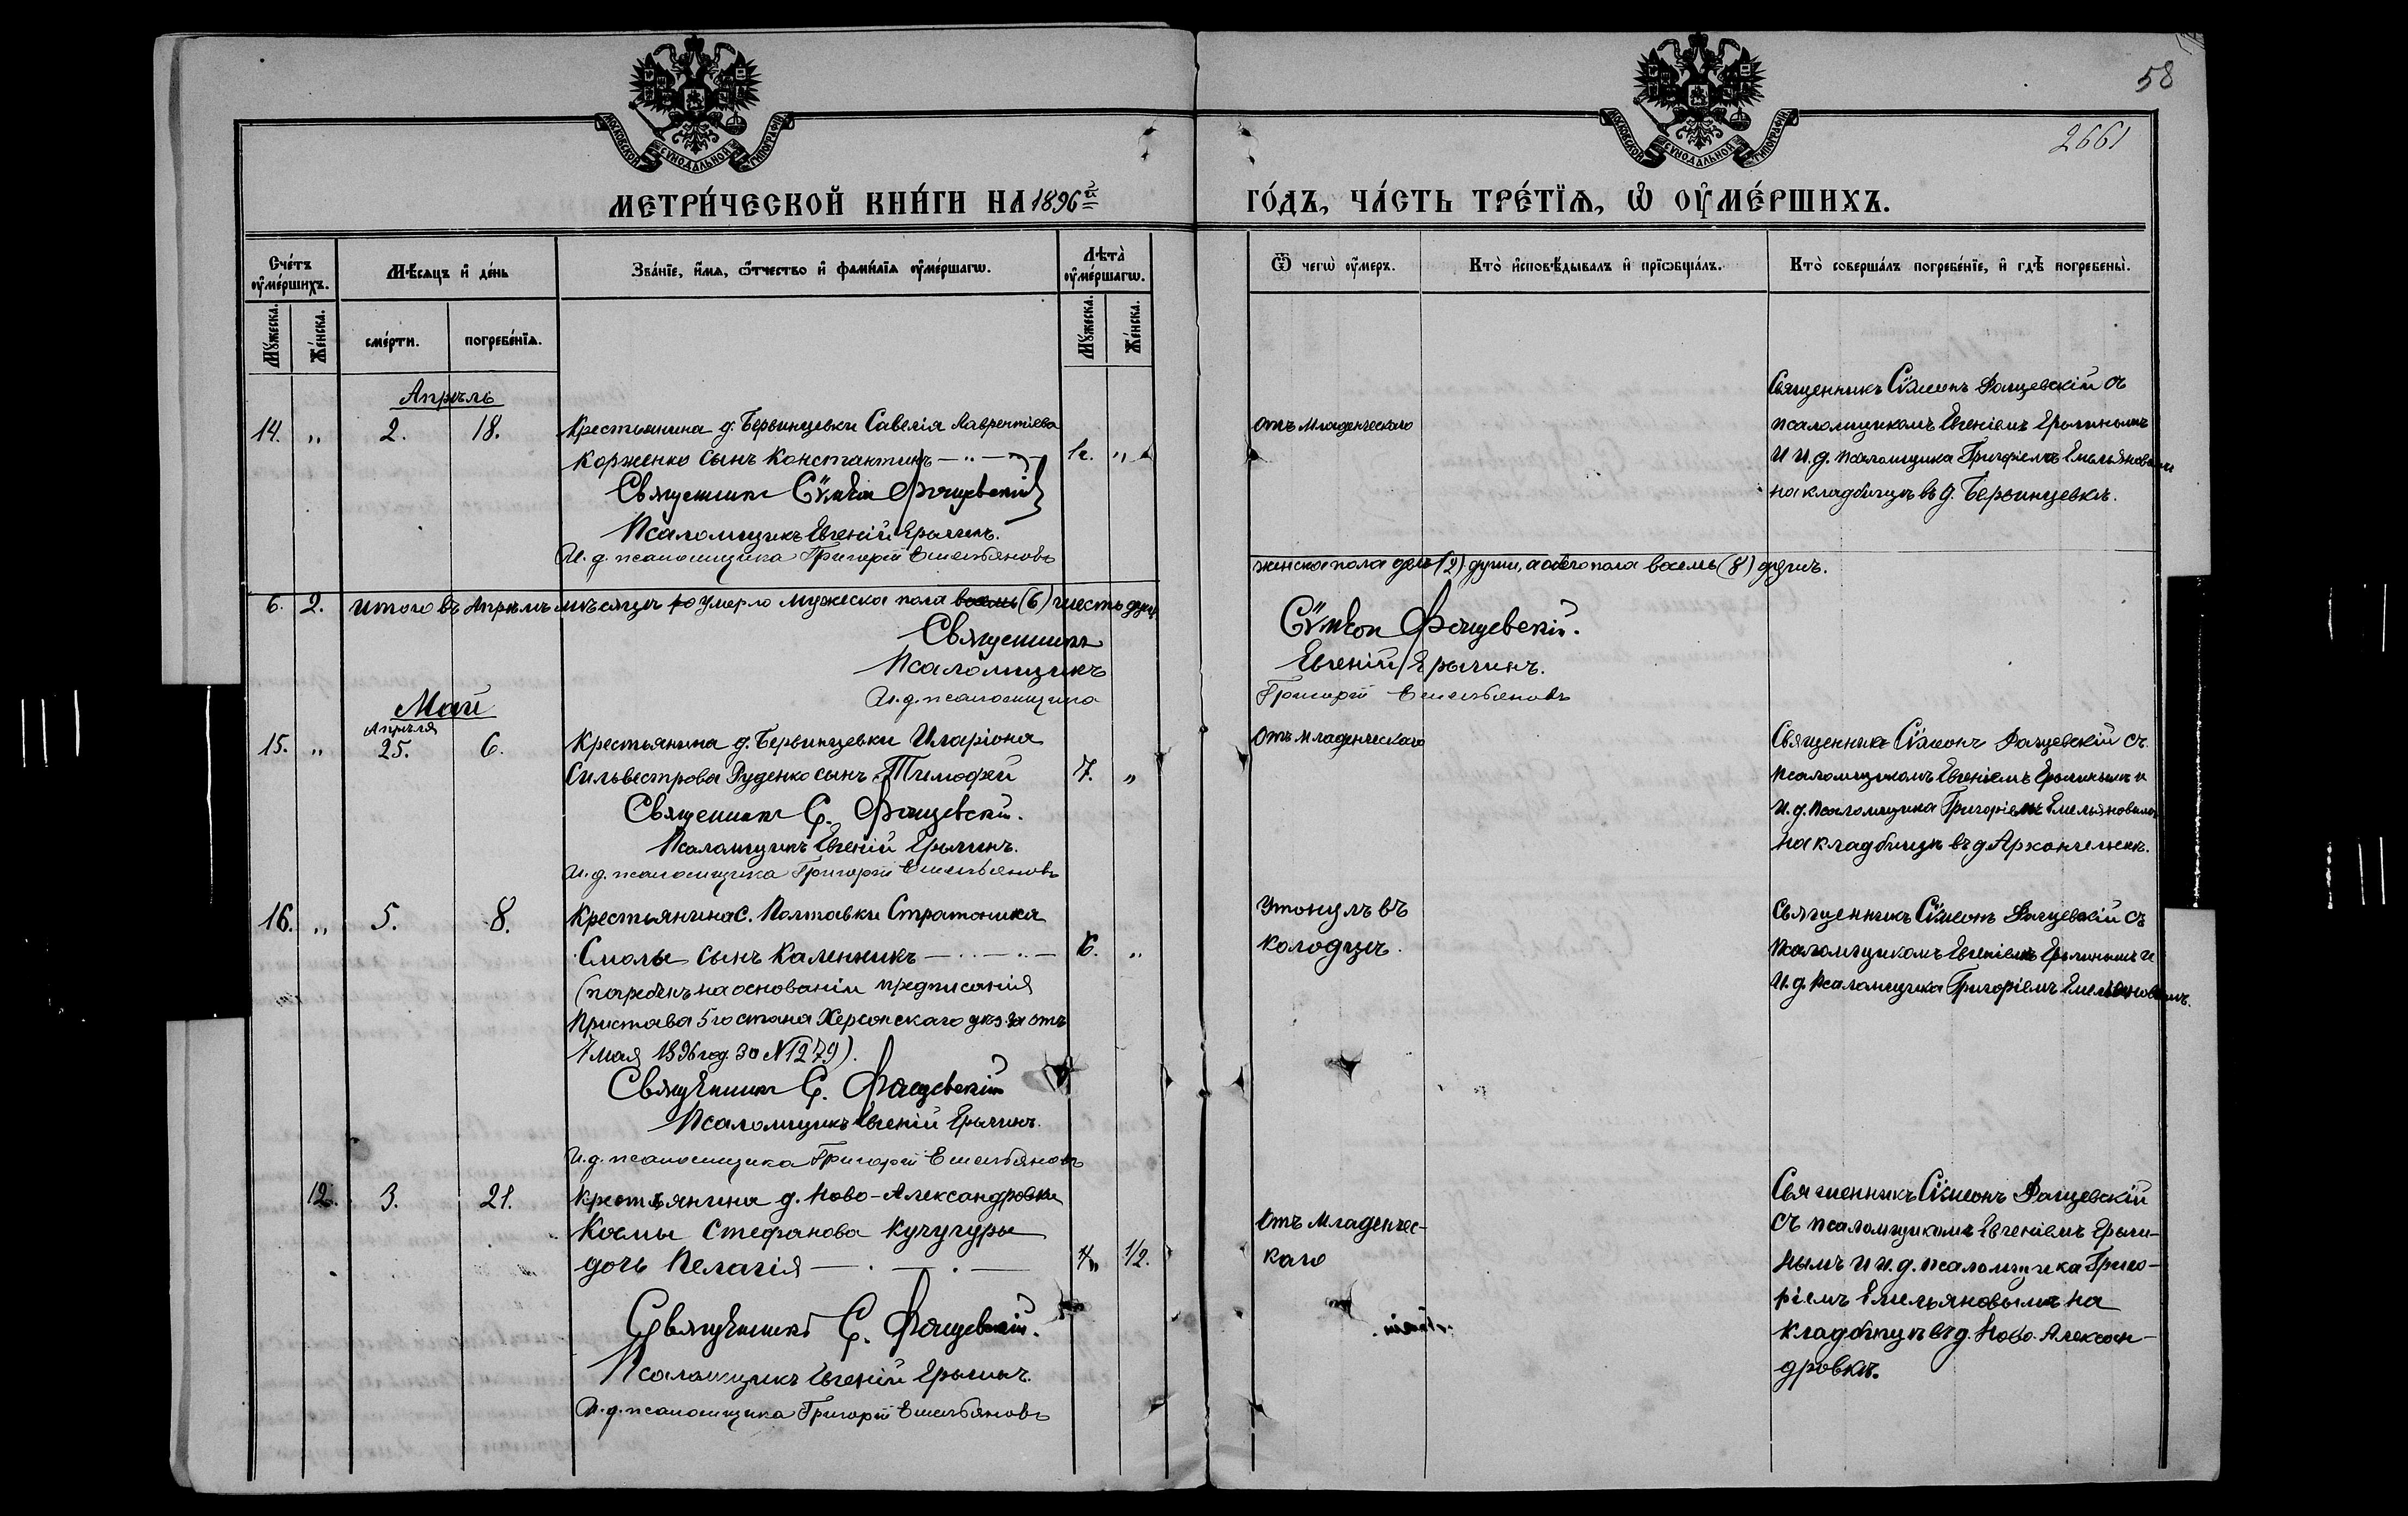 58
2661
МОСКОВСКОЙ СѴНОДАЛЬНОЙ ТИПОГРАФІИ
МОСКОВСКОЙ СѴНОДАЛЬНОЙ ТИПОГРАФІИ
МЕТРИ́ЧЕСКОЙ КНИ́ГИ НА 1896й
ГО́ДЪ, ЧА́СТЬ ТРЕ́ТЇѦ, Ѡ҆ ОУ҆МЕ́РШИХЪ.
Сче́тъ оу҆ме́ршихъ.
Мѣ́сяцъ и҆ де́нь
Зва́нїе, и҆́мѧ, ѻ҆́тчество и҆ фами́лїѧ оу҆ме́ршагѡ.
Лѣта̀ оу҆ме́ршагѡ.
Ѿ чегѡ̀ оу҆́меръ.
Кто̀ и҆сповѣ́дывалъ и҆ прїѡбща́лъ.
Кто̀ соверша́лъ погребе́нїе, и҆ гдѣ̀ погребены̀.
Мꙋ́жеска.
Же́нска.
сме́рти.
погребе́нїѧ.
Мꙋ́жеска.
Же́нска.
Апрѣль
14. " 2. 18. Крестьянина д. Бервинцевки Савелія Лаврентіева
Корженко сынъ Константинъ "
Священникъ Сѵмеон Фащевскій
Псаломщикъ Евгеній Ерычинъ.
И. д. псаломщика Григорій Емельяновъ
отъ младенческаго
Священникъ Сѵмеонъ Фащевскій съ
псаломщикомъ Евгеніемъ Ерычинымъ
и и. д. псаломщика Григоріемъ Емельяновымъ
на кладбищѣ въ д. Бервинцевкѣ.
6. 2. Итого въ Апрѣлѣ мѣсяцѣ умерло мужеска пола восемь (6) шесть душъ
женска пола двѣ (2) души, а обего пола восемь (8) душъ.
Священникъ Сѵмеон Фащевскій.
Псаломщикъ Евгеній Ерычинъ.
И. д. псаломщика Григорій Емельяновъ
Май
Апрѣля
15. " 25. 6. Крестьянина д. Бервинцевки Иларіона
Сильвестрова Руденко сынъ Тимофей 7. "
Священникъ С. Фащевскій.
Псаломщикъ Евгеній Ерычинъ.
И. д. псаломщика Григорій Емельяновъ
Отъ младенческаго
Священникъ Сѵмеонъ Фащевскій съ
псаломщикомъ Евгеніемъ Ерычинымъ и
и. д. псаломщика Григоріемъ Емельяновымъ
на кладбищѣ въ д Архангельскѣ.
16. " 5. 8. Крестьянина с. Полтавки Стратоника
Смолы сынъ Каленникъ 6. "
(погребенъ на основаніи предписанія
Пристава 5го стана Херсонскаго уѣз. отъ
7 мая 1896 год. за N 1279).
Священникъ С. Фащевскій
Псаломщикъ Евгеній Ерычинъ.
И. д. псаломщика Григорій Емельяновъ
Утонулъ въ
колодцѣ.
Священникъ Сѵмеонъ Фащевскій съ
Псаломщикомъ Евгеніемъ Ерычинымъ и
и. д. псаломщика Григоріемъ Емельяновымъ.
12. 3. 21. Крестьянина д. Ново-Александровки
Космы Стефанова Кучугуры
дочь Пелагія 1/2.
Священникъ С. Фащевскій.
Псаломщикъ Евгеній Ерычинъ.
И. д. псаломщика Григорій Емельяновъ
Отъ младенчес-
каго
Священникъ Сѵмеонъ Фащевскій
съ псаломщикомъ Евгеніемъ Ерычи-
нымъ и и. д. псаломщика Григо-
ріемъ Емельяновымъ на
кладбищѣ въ д. Ново-Алексан-
дровкѣ.